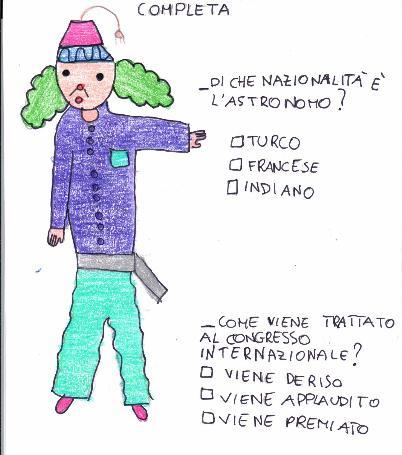 COMPLETA
_DI CHE NAZIONALITÀ È
L'ASTRONOMO?
□ TURCO
□ FRANCESE
□ INDIANO
_COME VIENE TRATTATO
AL CONGRESSO
INTERNAZIONALE?
□ VIENE DERISO
□ VIENE APPLAUDITO
□ VIENE PREMIATO